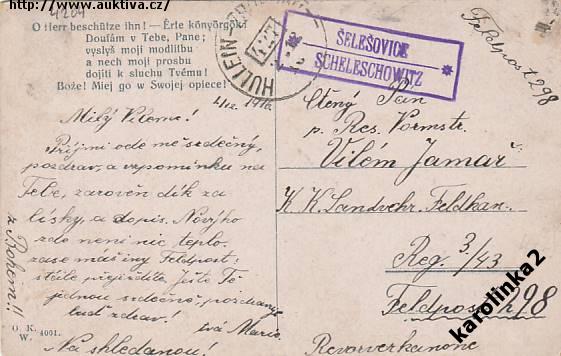 https://www.auktiva.cz/
4204
O Herr beschütze ihn! — Érte könyörgök!
Doufám v Tebe, Pane;
vyslyš moji modlitbu
a nech moji prosbu
dojíti k sluchu Tvému!
Bože! Miej go w Swojej opiece!
HULLEIN
ŠELEŠOVICE
SCHELESCHOWITZ
Feldpost 298
4/12. 1916
Milý Vileme!
Přijmi ode mě srdečný
pozdrav, a vzpomínku na
Tebe, zároveň dík za
lásky, a dopis. Nového
zde není nic, teplo.
zase máš iný Feldpost;
stále přejíždíte. Ještě Tě
jednou srdečně, pozdravuj
buď zdráv!
tvá Marie.
Na shledanou!
z Bohem!!
O. K.
W. 4001.
Ctěný Pan
p. Res. Vormstr.
Vilém Jamař
K. K. Landwehr. Feldkan.
Reg 3/43
Feldpost 298
Revorverkanone
karolinka2